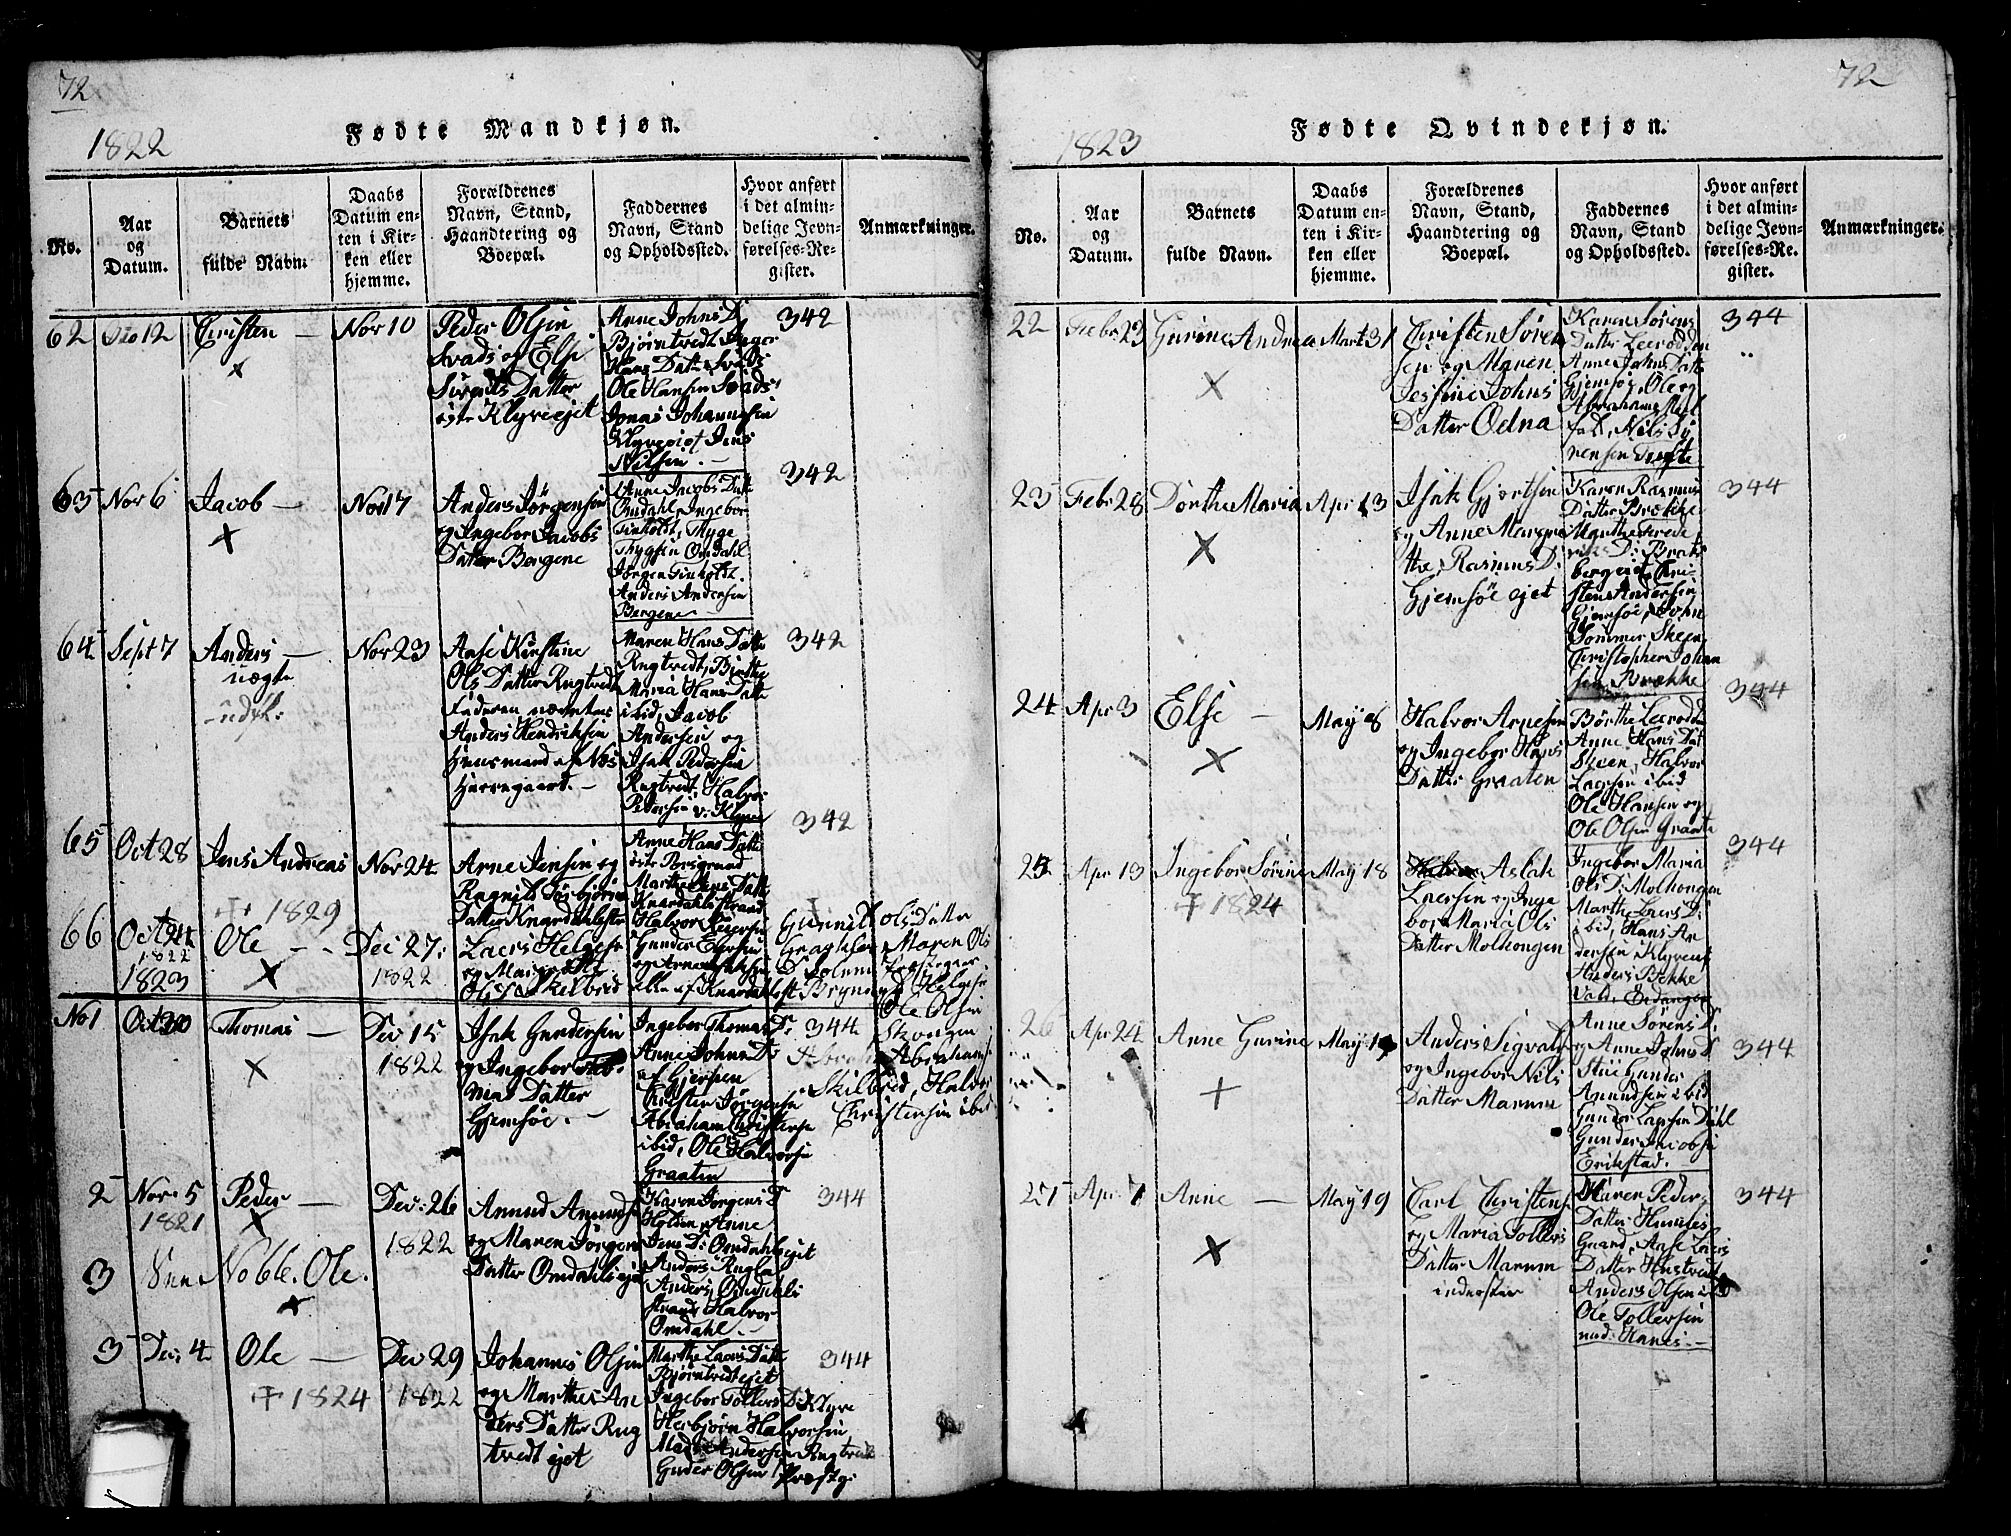 72
1822
Fødte Mandkjøn.
No.
Aar
og
Datum.
Barnets
fulde Navn.
Daabs
Datum en-
ten i Kir-
ken eller
hjemme.
Forældrenes
Navn, Stand,
Haandtering og
Boepæl.
Faddernes
Navn, Stand
og Opholdssted.
Hvor anført
i det almin-
delige Jevn-
førelses-Re-
gister.
Anmærkninger.
62
12
Christen —
Nov 10
Peder Olsen
Svads og Else
Sörens Datter
Klyveejet
Anne Johns D:
Bjørntvedt, Inger
Hans Datter Svads
Ole Hansen Svads
Jonas Johannesen
Klyveejet Jens
Nilsen. —
342
63
Nov 6
Jacob —
Nov 17
Anders Jørgensen
og Ingebor Jacobs
Datter Bergene
Anne Jacobs Datt
Omdahl, Ingebor
Finholdt, Thyge
Thygsen Omdahl
Jörgen Finholdt.
Anders Andersen
Bergene —
342
64
Sept 7
Anders —
uægte
Nov 23
Aase Kirstine
Ols Datter Rugtvedt
Faderen nævntes
Anders Hendriksen
Huusmand af Næs
Herregaard. —
Maren Hans Datte
Rugtvedt, Birthe
Maria Hans Datte
ibid, Jacob
Andersen og
Isak Pedersen
Rugtvedt, Halvor
Pedersen v. Klyve
342
65
Oct 28
Jens Andreas
† 1829
Nov 24
Arne Jensen og
Ragnild Torbjörns
Datter Knardahlsstr
Anne Hans Datt
Marthe Jens Datt
Knardahlsstrand
Halvor Reiersen
Gunder Eversen
og Arne Isaksen
alle af Knardahlsst
342
66
Oct 21
1822
Ole - -
Dec 27:
1822
Laers Helgesen
og Margrethe
Ols D Skilbred
Gunnild Ols Datter
Maren Ols
D Solum Præstegaar
Brynild Helgese
Ole Olsen
Skougen
Abraham
Skilbred, Halvor
Christensen ibid
1823
No 1
Oct 20
Thomas —
Dec 15
1822
Isak Gundersen
og Ingebor
Datter
Gjemsöe. —
Ingebor Thomas D:
Anne Johns D:
af Gjerpen
Christen Jörgense
Abraham Christense
ibid, Ole Halvorsen
Graaten
344
2
Nov. 5
1821
Peder —
Dec: 26
1822
Amund Amundse
og Maren Jörgens
Datter Omdahlsejet
Karen Jörgens D:
Holten, Anne
Jens D: Omdahlsejet
Anders Rugla
Anders, Omdahls
strand Halvor
Omdahl. —
344
3
No 66. Ole.
3
Dec. 4
Ole —
† 1824
Dec 29
1822
Johannes Olsen
og Marthe An
ders Datter Rug
tvedt ejet
Marthe Laers Datte
Bjørntvedt ejet
Ingebor Tollers D: Klyve
Herbjørn Halvorsen
Mads Andersen Rugtvedt
Gunder Olsen Præstgj
344
72
1823
Fødte Qvindekjøn.
No.
Aar
og
Datum.
Barnets
fulde Navn.
Daabs
Datum en-
ten i Kir-
ken eller
hjemme.
Forældrenes
Navn, Stand,
Haandtering og
Boepæl.
Faddernes
Navn, Stand
og Opholdssted.
Hvor anført
i det almin-
delige Jevn-
førelses-Re-
gister.
Anmærkninger.
22
Febr 23
Gurine Andrea
Mart 31
Christen Sören
sen og Maren
Jesine Johns
Datter Ødna
Karen Sörens
Datter Leerodden
Anne Johns Datt
Gjemsöe, Ole og
Abrahams Mel
fald, Nils Sy
vensen
344
23
Febr 28
Dorthe Maria
Apr 13
Isak Gjertsen
og Anne Margre
the, Rasmus D:
Gjemsöe ejet
Karen Rasmus
Datter Brække
Marthe Frede
riks D: Brats
bergejet, Chri-
sten Andersen
Gjemsöe, John
Sommer Skeen
Christopher Johan
sen Brække
344
24
Apr 3
Else —
May 8
Halvor Arnesen
og Ingebor Hans
Datter Graaten
Börthe Leerodden
Anne Hans Dat
Skeen, Halvor
Laersen ibid
Ole Hansen og
Ole Olsen Graate
344
25
Apr 13
Ingebor Sörine
† 1824
May 18
Aslak
Laersen og Inge
bor Maria Ols
Datter Molhougen
Ingebor Maria
Ols D: Molhougen
Marthe Laers D:
ibid, Hans An
dersen Klyveejet
Anders Bække
Vold, Eidanger
344
26
Apr 24
Anne Gurine
May 19
Anders Sigvald
og Ingebor Nils
Datter Marum
Anne Sörens D:
og Anne Johns D:
Stii Gunder
Amundsen ibid
Gunder Laersen Dahl
Gunder Jacobse
Erikstad. —
344
27
Apr. 7
Anne —
May 19
Carl Christens
og Maria Tollers
Datter Marum
inderster
Maren Peder
Datter
Gaard, Aase Laers
Datter
Anders Olsen
Ole Tollersen
344